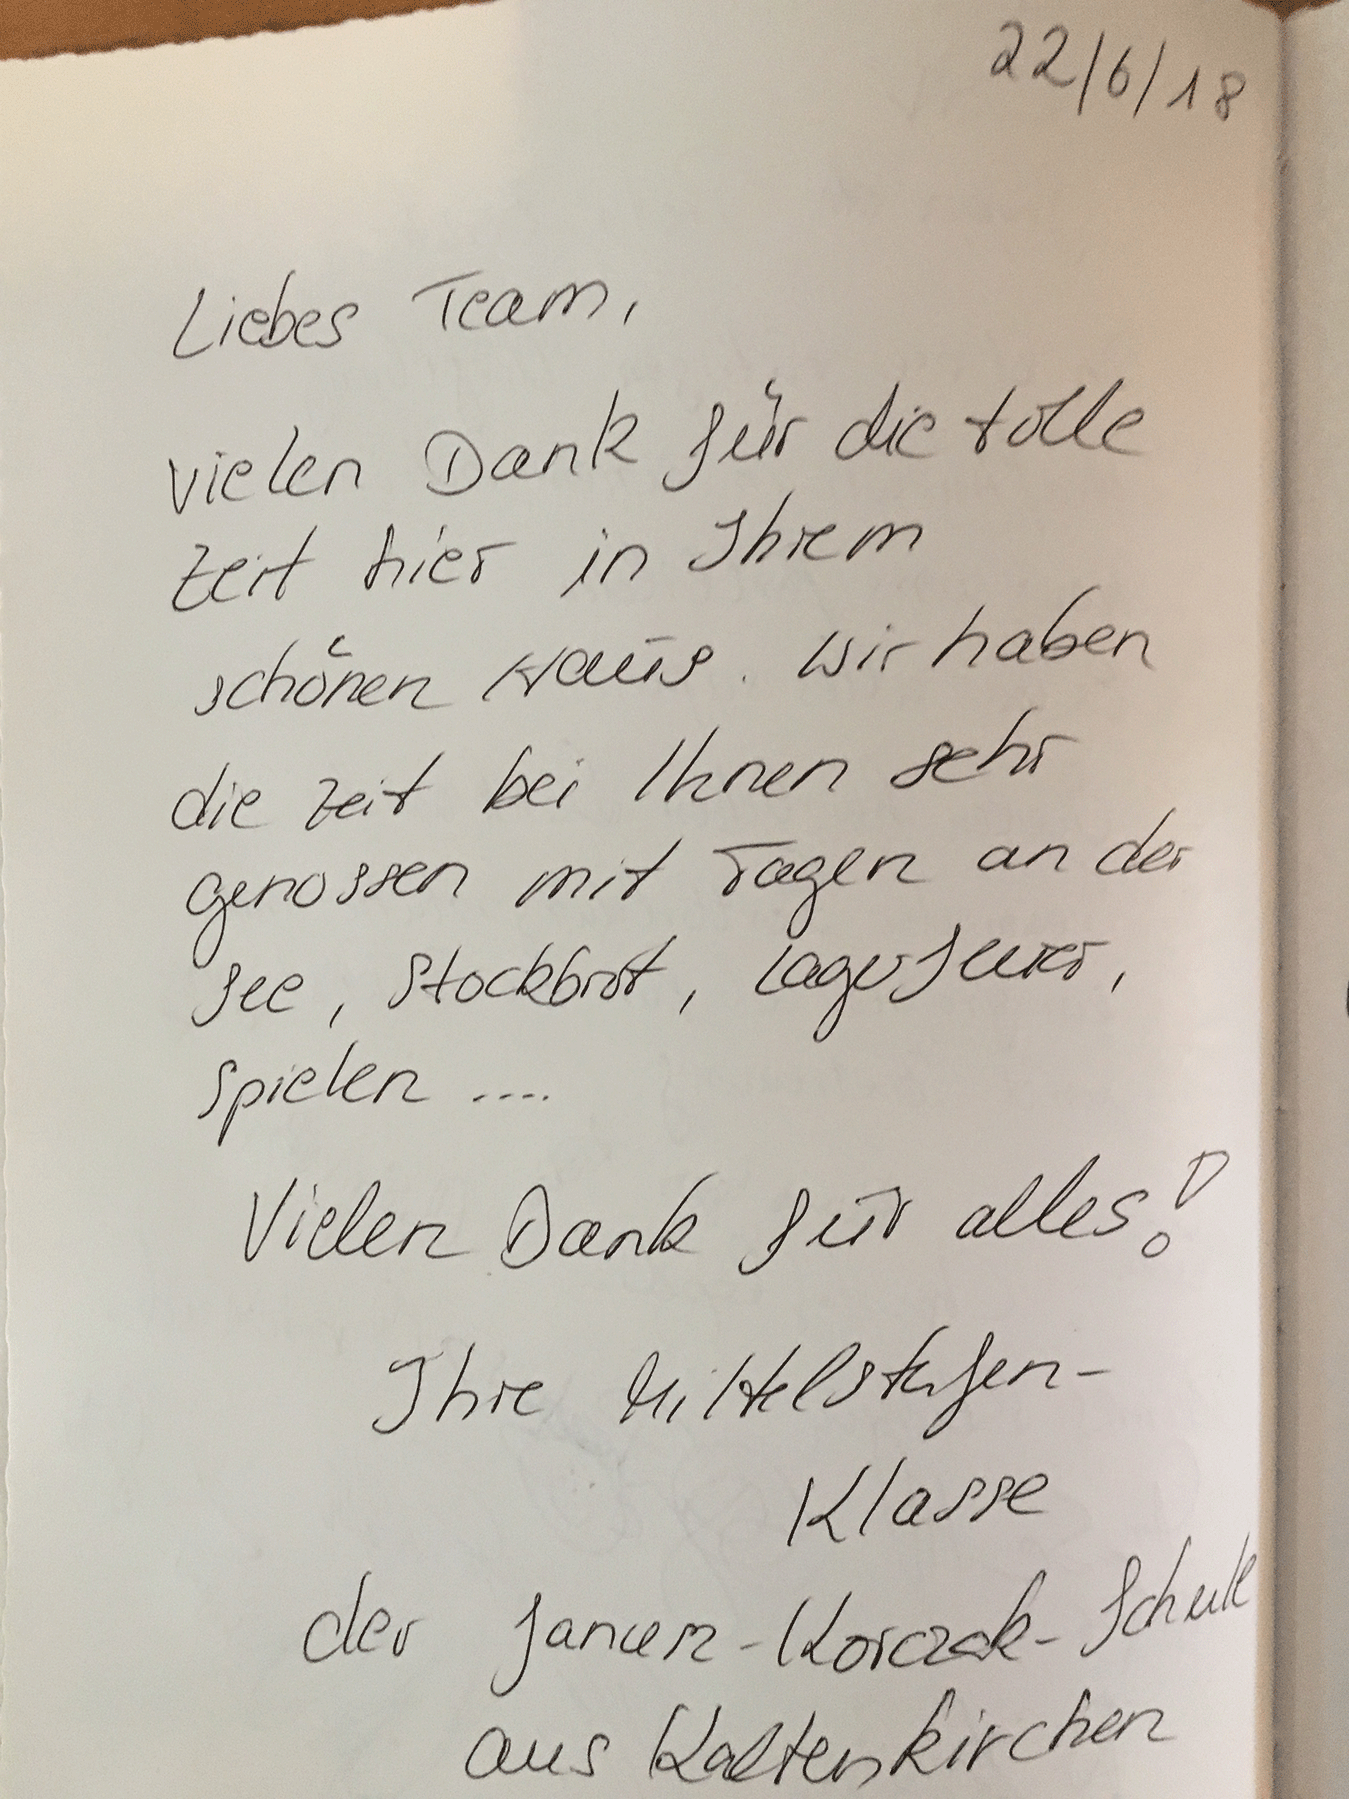 22/6/18
Liebes Team,
vielen Dank für die tolle
Zeit hier in Ihrem
schönen Haus. Wir haben
die Zeit bei Ihnen sehr
genossen mit Tagen an der
See, Stockbrot, Lagerfeuer,
Spielen ....
Vielen Dank für alles!
Ihre Mittelstufen-
Klasse
der Janusz-Korczak-Schule
aus Kaltenkirchen